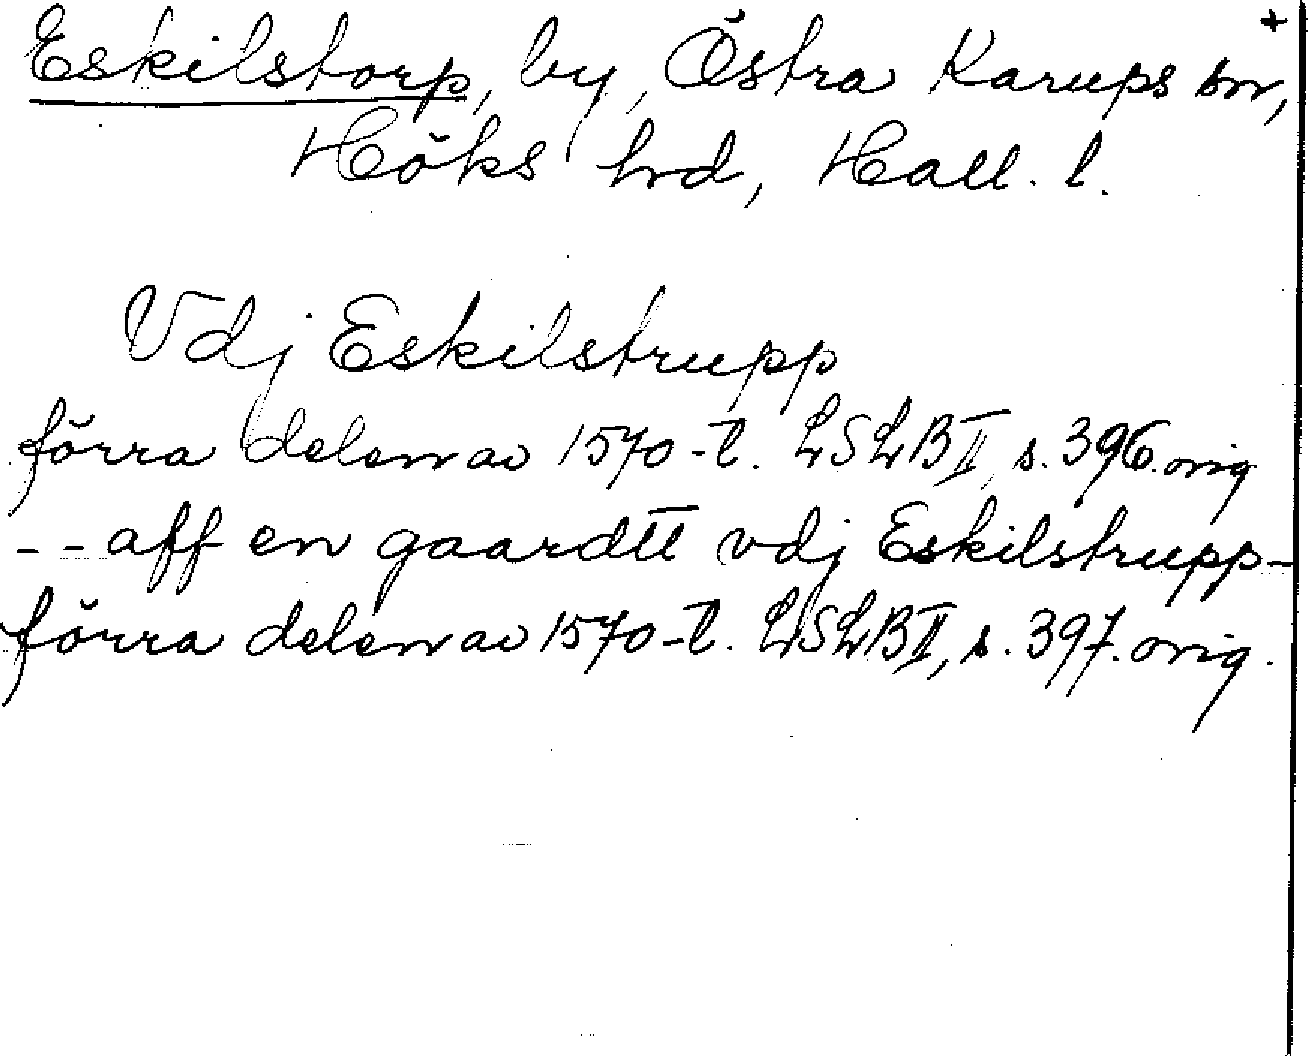 +
Eskilstorp, by, Östra Karups sn,
Höks hrd, Hall. l.
Vdj Eskilstrupp
förra delen av 1570-t. LSLB II, s. 396. orig
-- aff en gaardtt vdj Eskilstrupp -
förra delen av 1570-t. LSLB II, s. 397. orig.